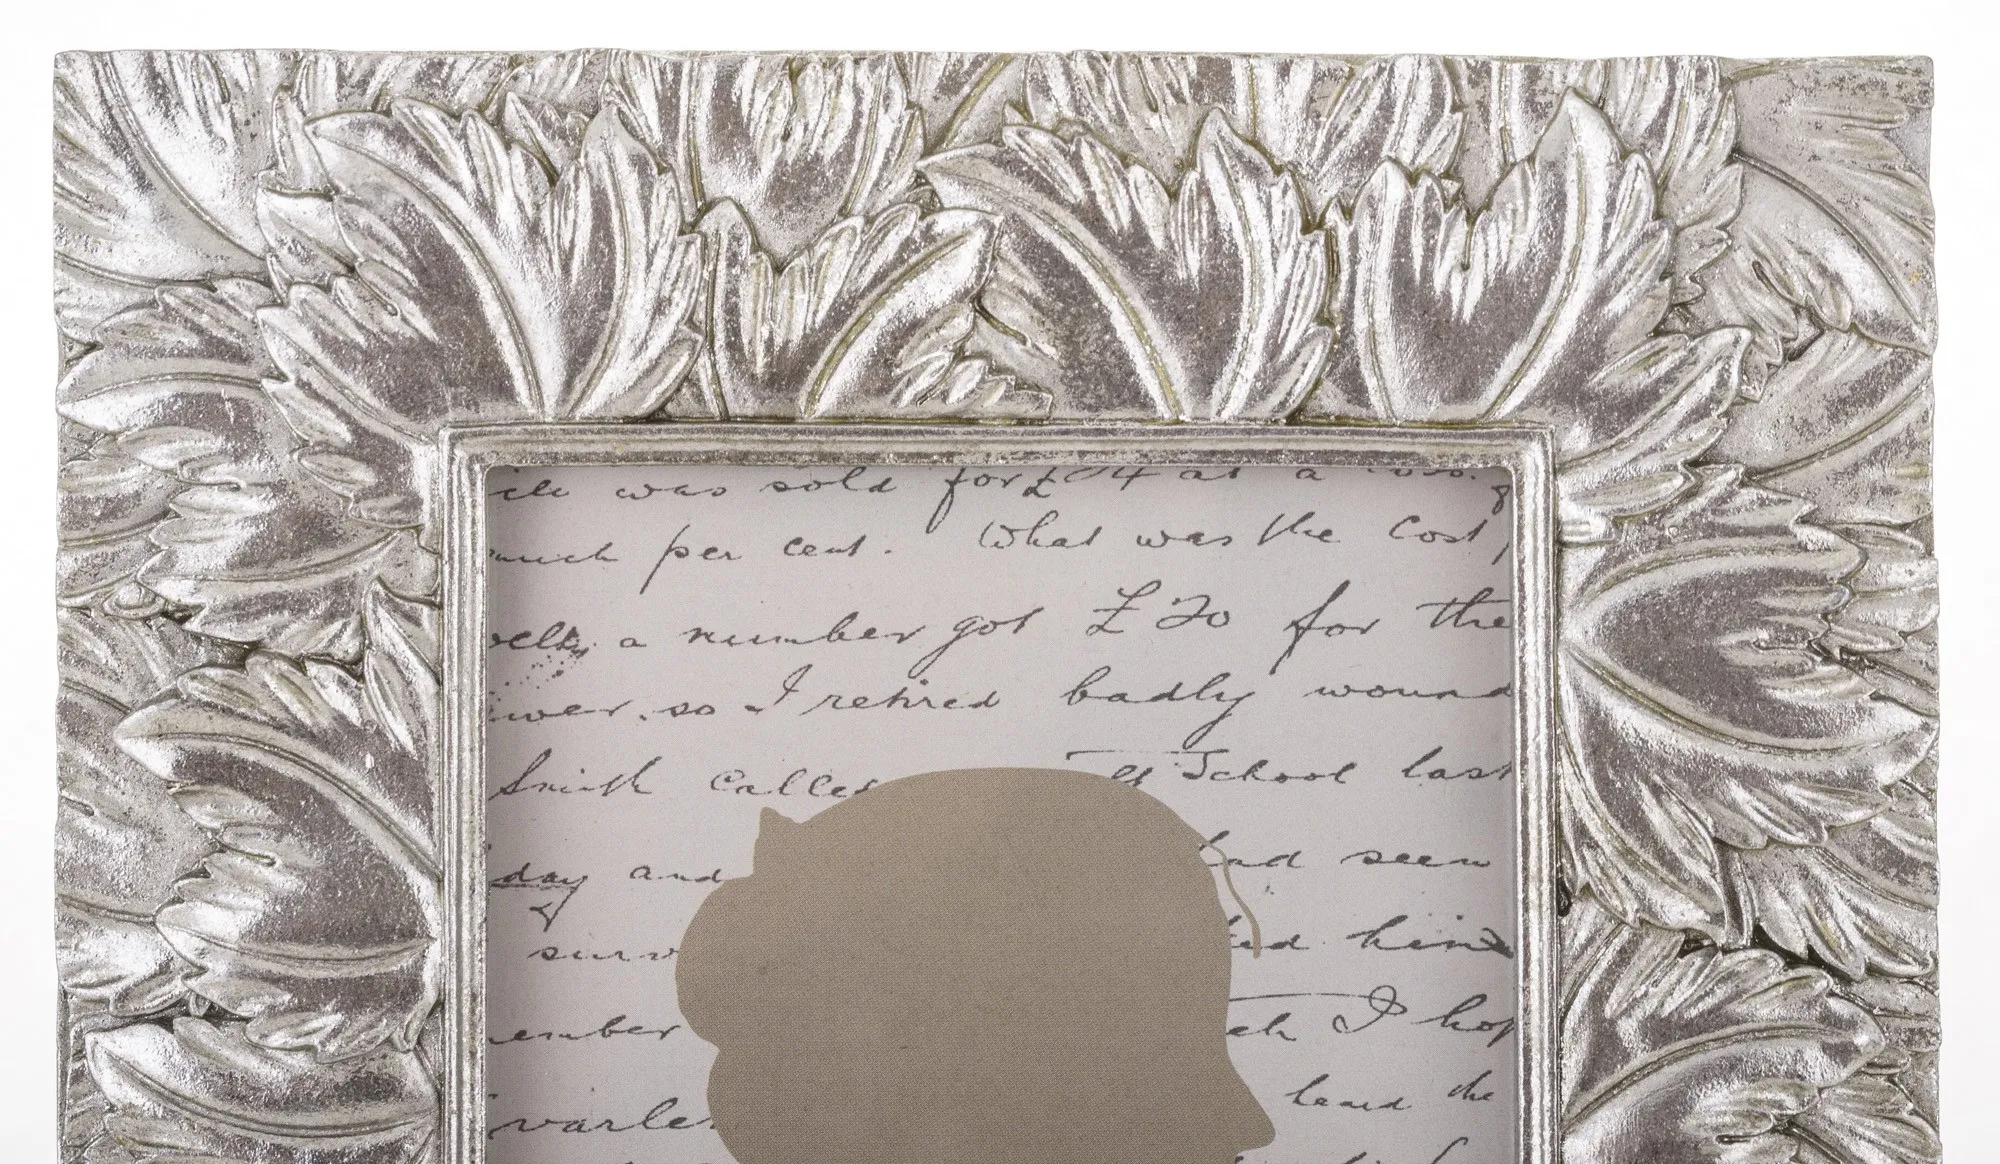 was sold for £ 4 at a
much per cent. What was the Cost,
a number got £20 for the
so I retired badly wound
Smith called School last
day and had seen
surv ed him
ember ch I hop
heard the